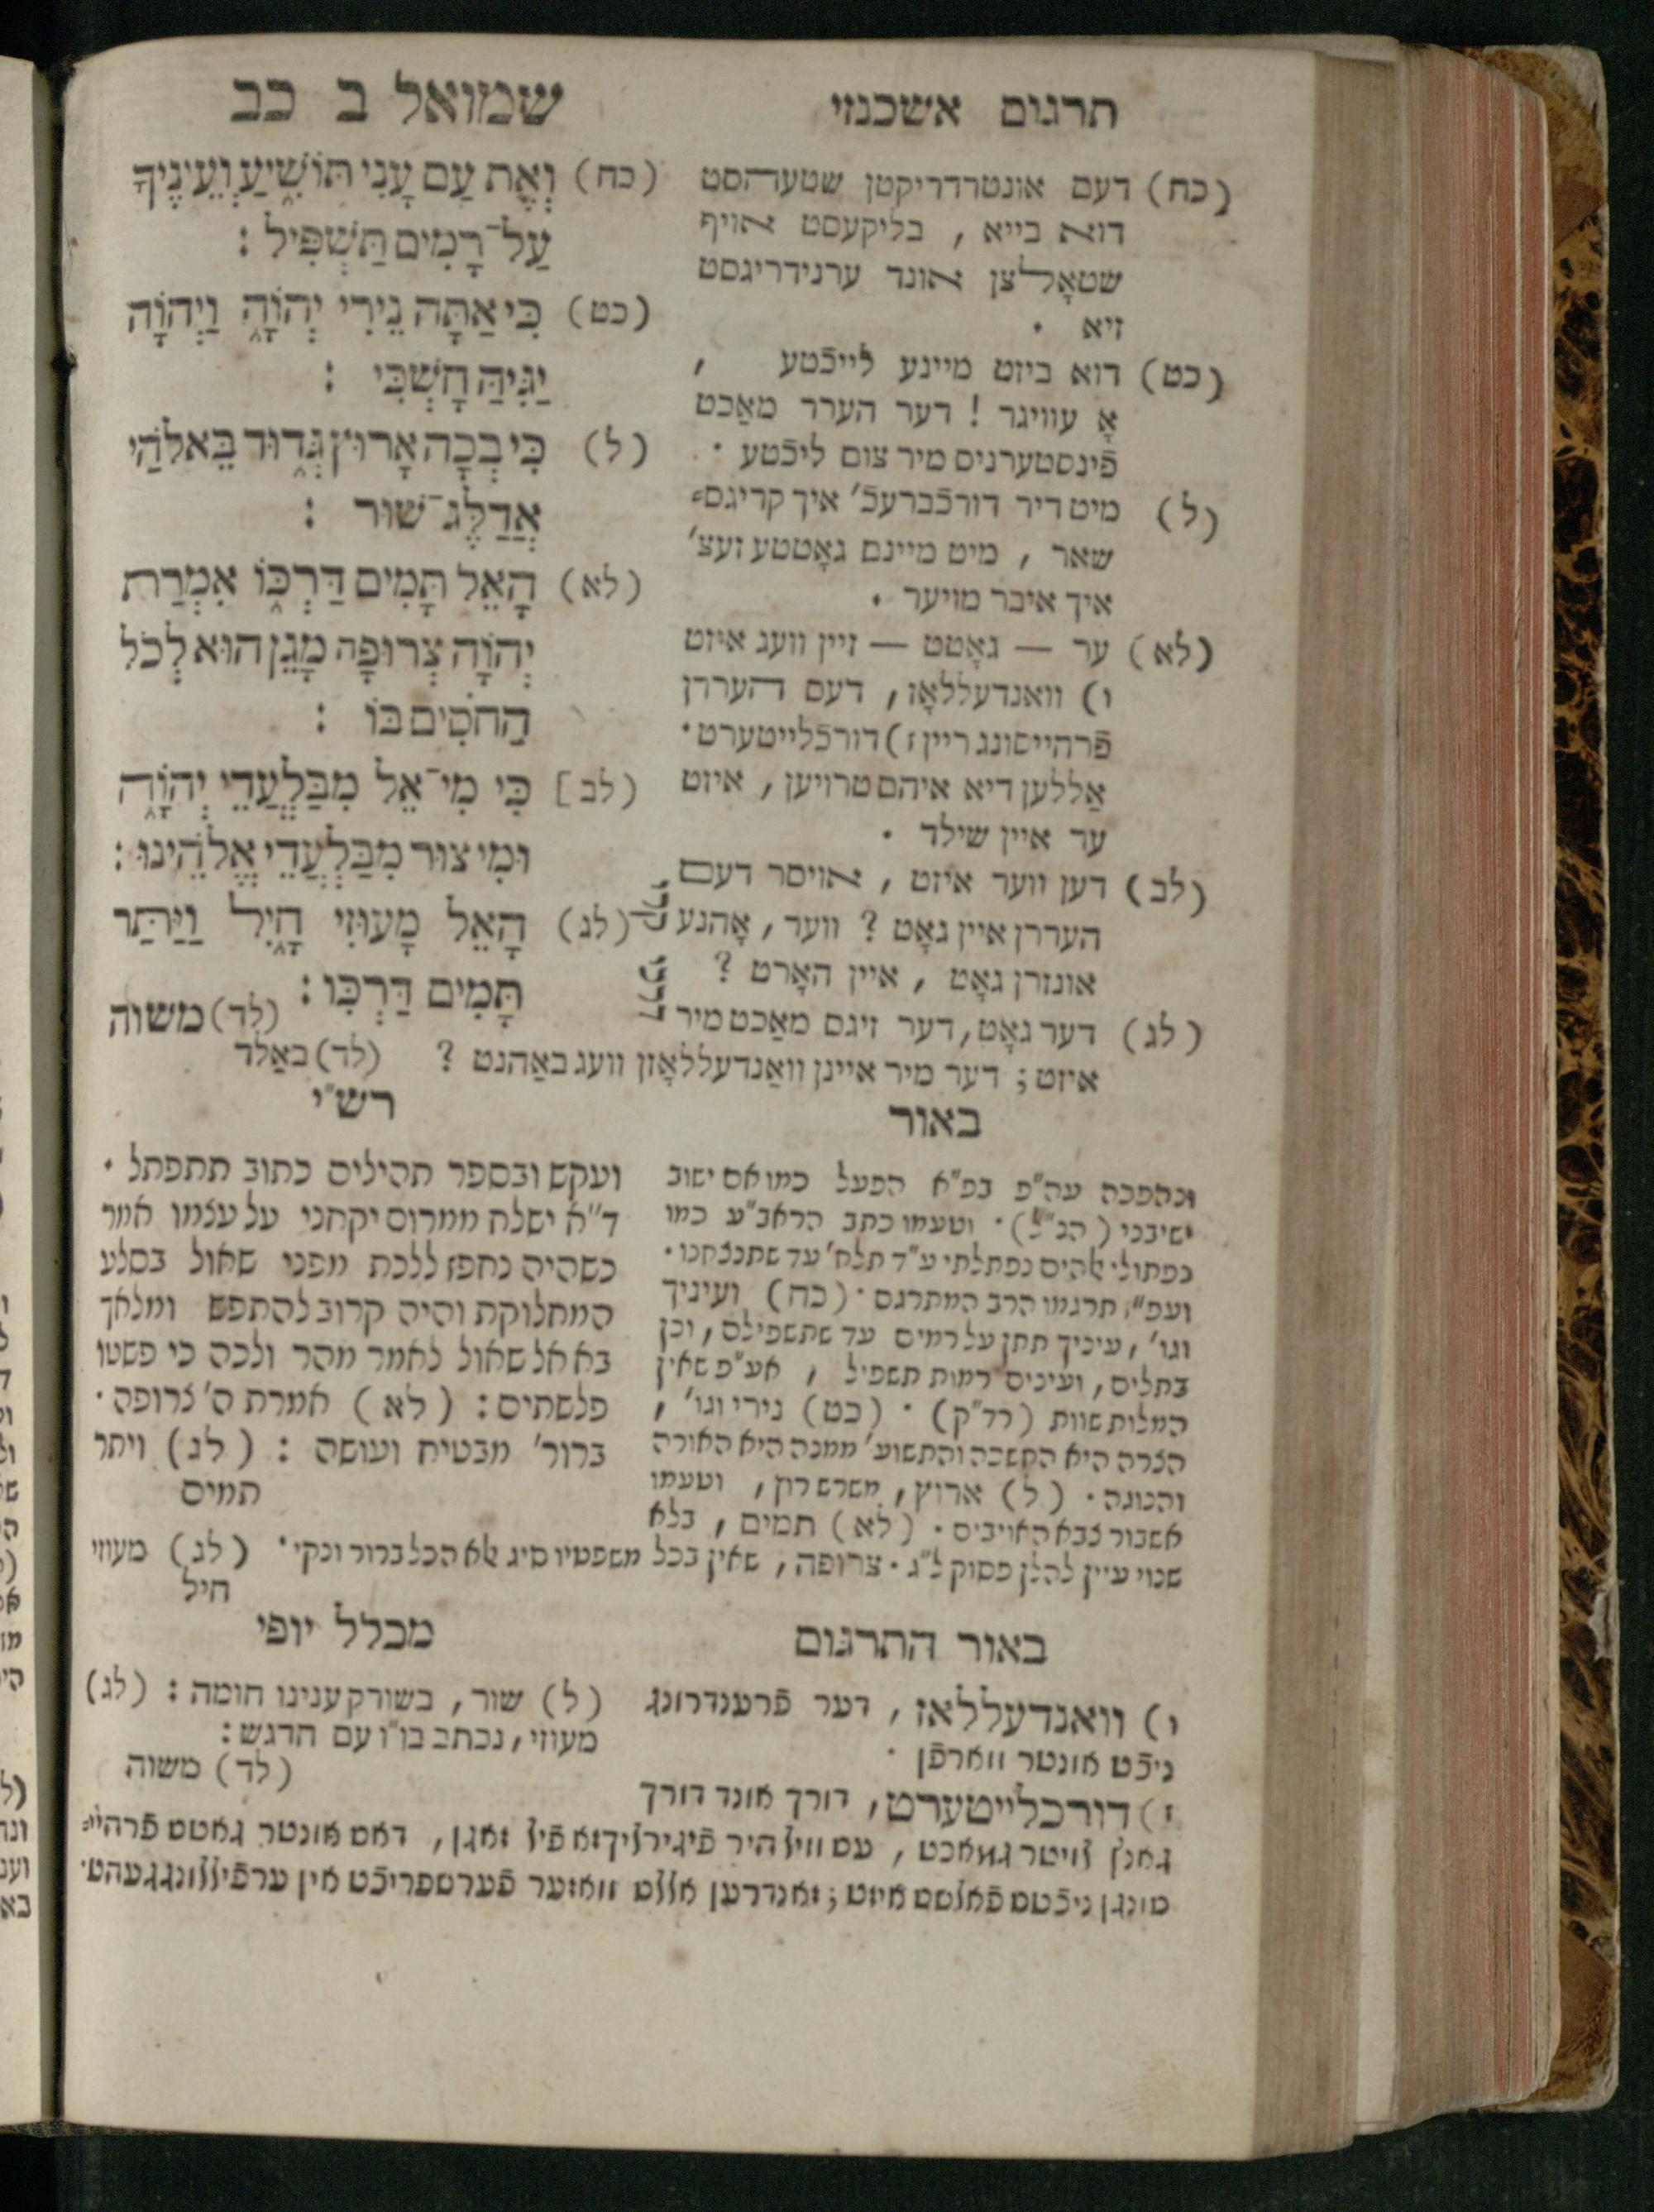 תרגום אשכנזי
שמואל ב כב
(כח) דעם אונטרדריקטן שטעהסט
דוא בייא , בליקעסט אויף
שטאָלצן אונד ערנידריגסט
זיא .
(כט) דוא ביזט מיינע לייכֿטע ,
אָ עוויגר ! דער הערר מאַכט
פֿינסטערניס מיר צום ליכֿטע .
(ל) מיט דיר דורכֿברעכֿ' איך קריגס=
שאר , מיט מיינם גאָטטע זעצ'
איך איבר מויער .
(לא) ער — גאָטט — זיין וועג איזט
ו) וואנדעללאָז , דעם העררן
פֿרהייסונג ריין ז) דורכֿלייטערט .
אַללען דיא איהם טרויען , איזט
ער איין שילד .
(לב) דען ווער איזט , אויסר דעם
העררן איין גאָט ? ווער , אָהנע
אונזרן גאָט , איין האָרט ?
(לג) דער גאָט , דער זיגם מאַכט מיר
איזט ; דער מיר איינן וואַנדעללאָזן וועג באַהנט ? (לד) באַלד
(כח) וְאֶת עַם עָנִי תּוֹשִׁיעַ וְעֵינֶיךָ
עַל־רָמִים תַּשְׁפִּיל :
(כט) כִּי אַתָּה נֵירִי יְהוָֹה וַיהוָֹה
יַגִּיהַּ חָשְׁכִּי :
(ל) כִּי בְכָה אָרוּץ גְּדוּד בֵּאלֹהַי
אֲדַלֶּג־שׁוּר :
(לא) הָאֵל תָּמִים דַּרְכּוֹ אִמְרַת
יְהוָֹה צְרוּפָה מָגֵן הוּא לְכֹל
הַחֹסִים בּוֹ :
(לב] כִּי מִי־אֵל מִבַּלְעֲדֵי יְהוָֹה
וּמִי צוּר מִבַּלְעֲדֵי אֱלֹהֵינוּ :
(לג) הָאֵל מָעוּזִּי חָיִל וַיַּתֵּר
תָּמִים דַּרְכּוֹ :
(לד) משוה
קרי
דרכי
באור
ונהפכה עה"פ בפ"א הפעל כמו אם ישוב
וטעמו כתב הראב"ע כמו
נפתולי אלהים נפתלתי ע"ד תלח' עד שתנצחנו .
תרגמו הרב המתרגם . (כח) ועיניך
וגו' , עיניך תתן על רמים עד שתשפילם , וכן
בתלים , ועינים רמות תשפיל , אע"פ שאין
המלות שוות (רד"ק) . (כט) נירי וגו' ,
הצרה היא החשכה והתשוע' ממנה היא האורה
והנוגה . (ל) ארוץ , משרש רוץ , וטעמו
אשבור צבא האויבים . (לא) תמים , בלא
שנוי עיין להלן פסוק ל"ג . צרופה , שאין בכל משפטיו סיג אלא הכל ברור ונקי . (לג) מעוזי
חיל
רש"י
ועקש ובספר תהילים כתוב תתפתל .
ד"א ישלח ממרום יקחני על עצמו אמר
כשהיה נחפז ללכת מפני שאול בסלע
המחלוקת והיה קרוב להתפש ומלאך
בא אל שאול לאמר מהר ולכה כי פשטו
פלשתים : (לא) אמרת ה' צרופה .
ברור' מבטיח ועושה : (לג) ויתר
תמים
באור התרגום
ו) וואנדעללאז , דער פֿרענדרונג
ניכֿט אונטר ווארפֿן .
ז) דורכלייטערט , דורך אונד דורך
גאנץ לויטר גמאכט , עס וויל היר פֿיגירליך זא פֿיל זאגן , דאס אונטר גאטס פֿרהיי=
סונגן ניכֿטס פֿאלסם איזט ; זאנדרען אללס וואזער פֿערספריכֿט אין ערפֿיללונג געהט .
מכלל יופי
(ל) שור , בשורק ענינו חומה : (לג)
מעוזי , נכתב בו"ו עם הדגש :
(לד) משוה